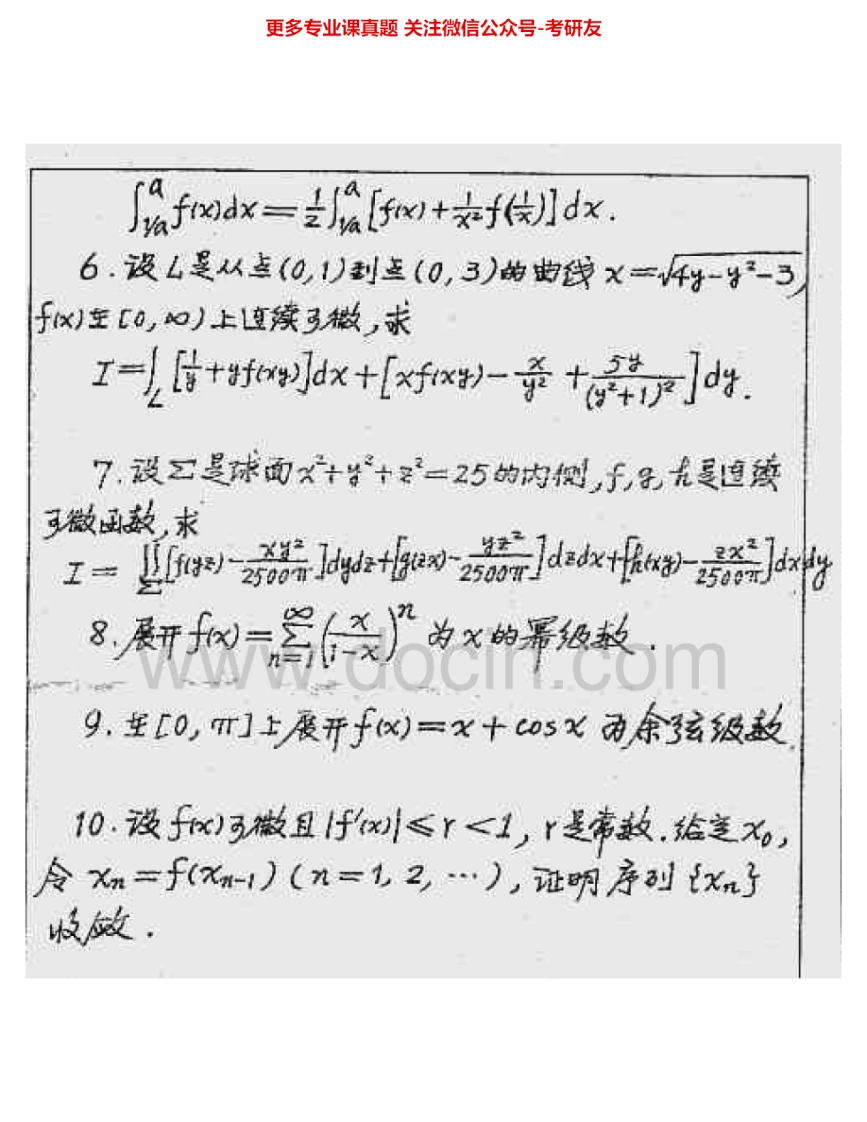 更多专业课真题 关注微信公众号-考研友
∫_{1/a}^{a} f(x)dx = 1/2 ∫_{1/a}^{a} [f(x) + 1/x² f(1/x)] dx.
6. 设L是从点(0,1)到点(0,3)的曲线 x = √(4y-y²-3),
f(x)在[0,∞)上连续可微,求
I = ∫_L [1/y + yf(xy)]dx + [xf(xy) - x/y² + 5y/(y²+1)²] dy.
7. 设Σ是球面x²+y²+z²=25的内侧,f,g,h是连续
可微函数,求
I = ∬_Σ [f(yz) - xy²/2500π]dydz + [g(zx) - yz²/2500π]dzdx + [h(xy) - zx²/2500π]dxdy
8. 展开f(x) = ∑_{n=1}^{∞} (x/(1-x))^n 为x的幂级数.
www.docin.com
9. 在[0,π]上展开f(x)=x+cosx 为余弦级数.
10. 设f(x)可微且|f′(x)|≤r<1, r是常数.给定x₀,
令 xₙ=f(xₙ₋₁) (n=1,2,…),证明序列{xₙ}
收敛.